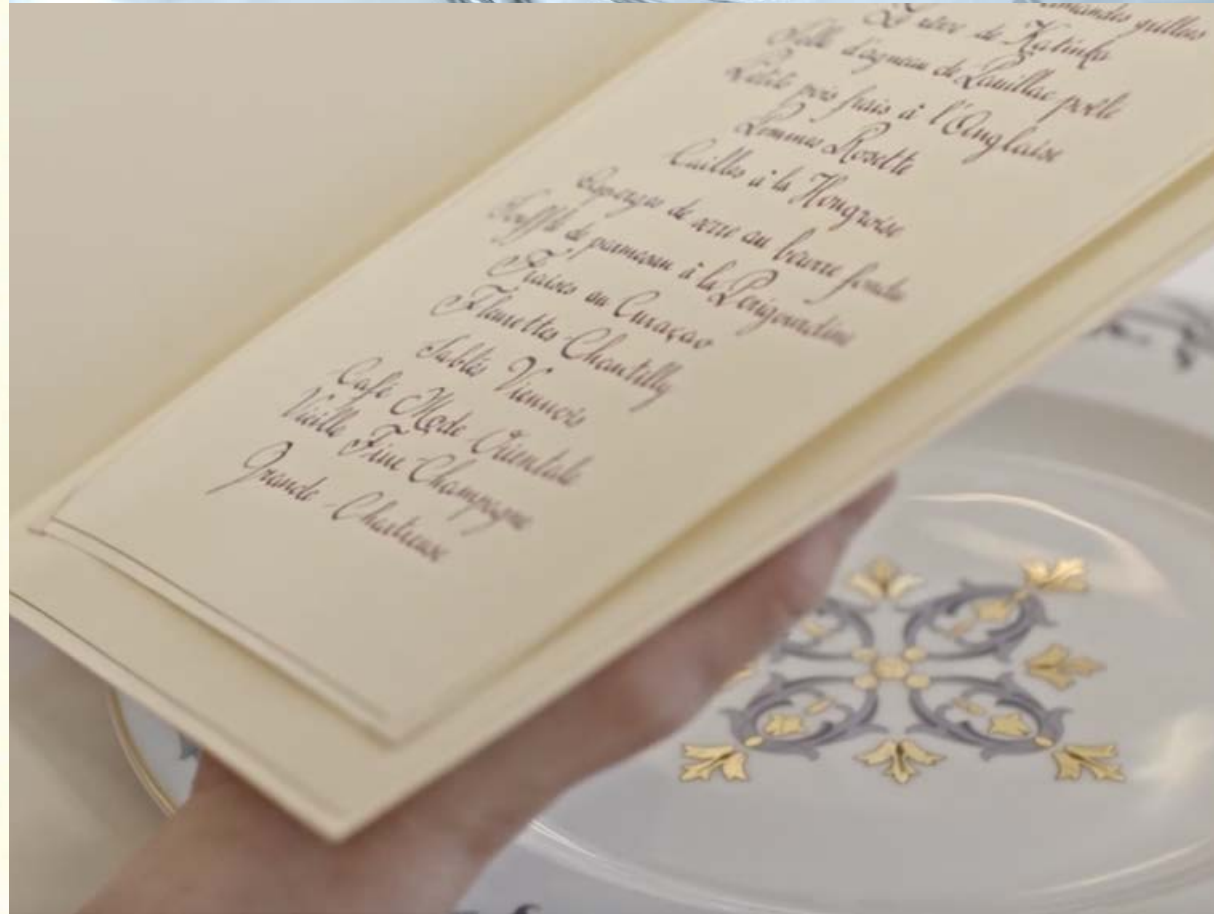 amandes grillées
Le rêve de Katinka
Selle d'agneau de Pauillac poêlé
Petits pois frais à l'Anglaise
Pommes Rosette
Cailles à la Hongroise
Asperges de serre au beurre fondu
Soufflé de parmesan à la Périgourdine
Fraises au Curaçao
Fleurettes Chantilly
Sablés Viennois
Café Mode Orientale
Vieille Fine Champagne
Grande Chartreuse